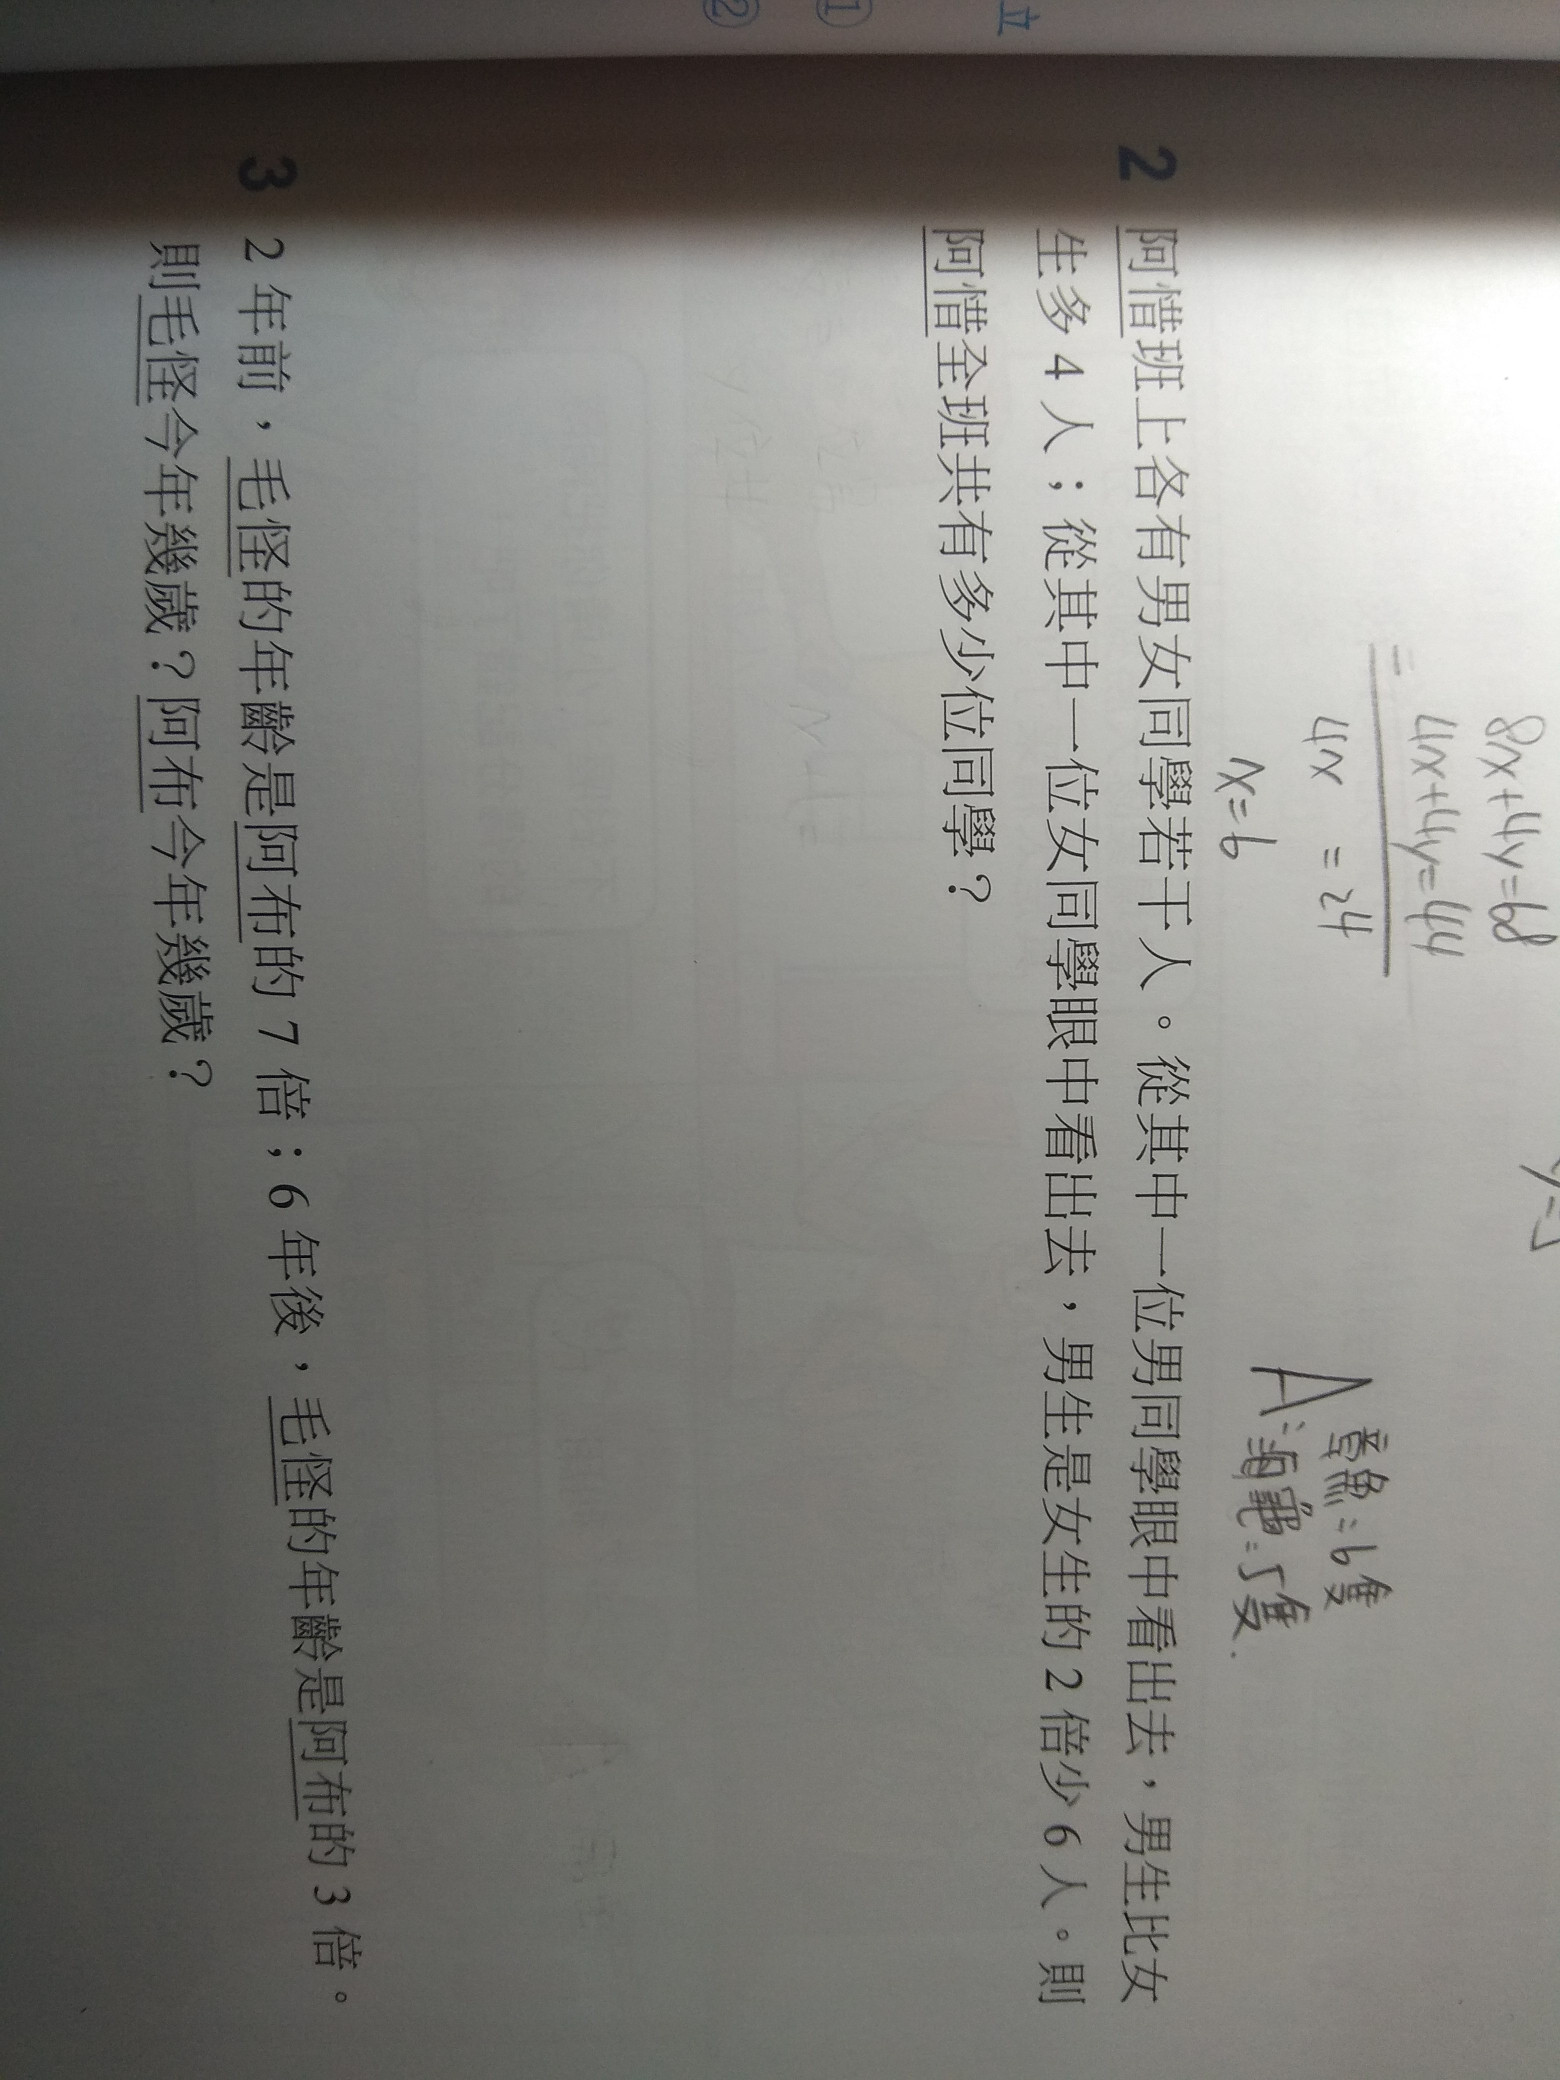 立
①
②
8x+4y=68
4x+4y=44
4x = 24
x=6
章魚=6隻
A:海龜=5隻.
2 阿惜班上各有男女同學若干人。從其中一位男同學眼中看出去,男生比女
生多 4 人;從其中一位女同學眼中看出去,男生是女生的 2 倍少 6 人。則
阿惜全班共有多少位同學?
3 2 年前,毛怪的年齡是阿布的 7 倍;6 年後,毛怪的年齡是阿布的 3 倍。
則毛怪今年幾歲?阿布今年幾歲?